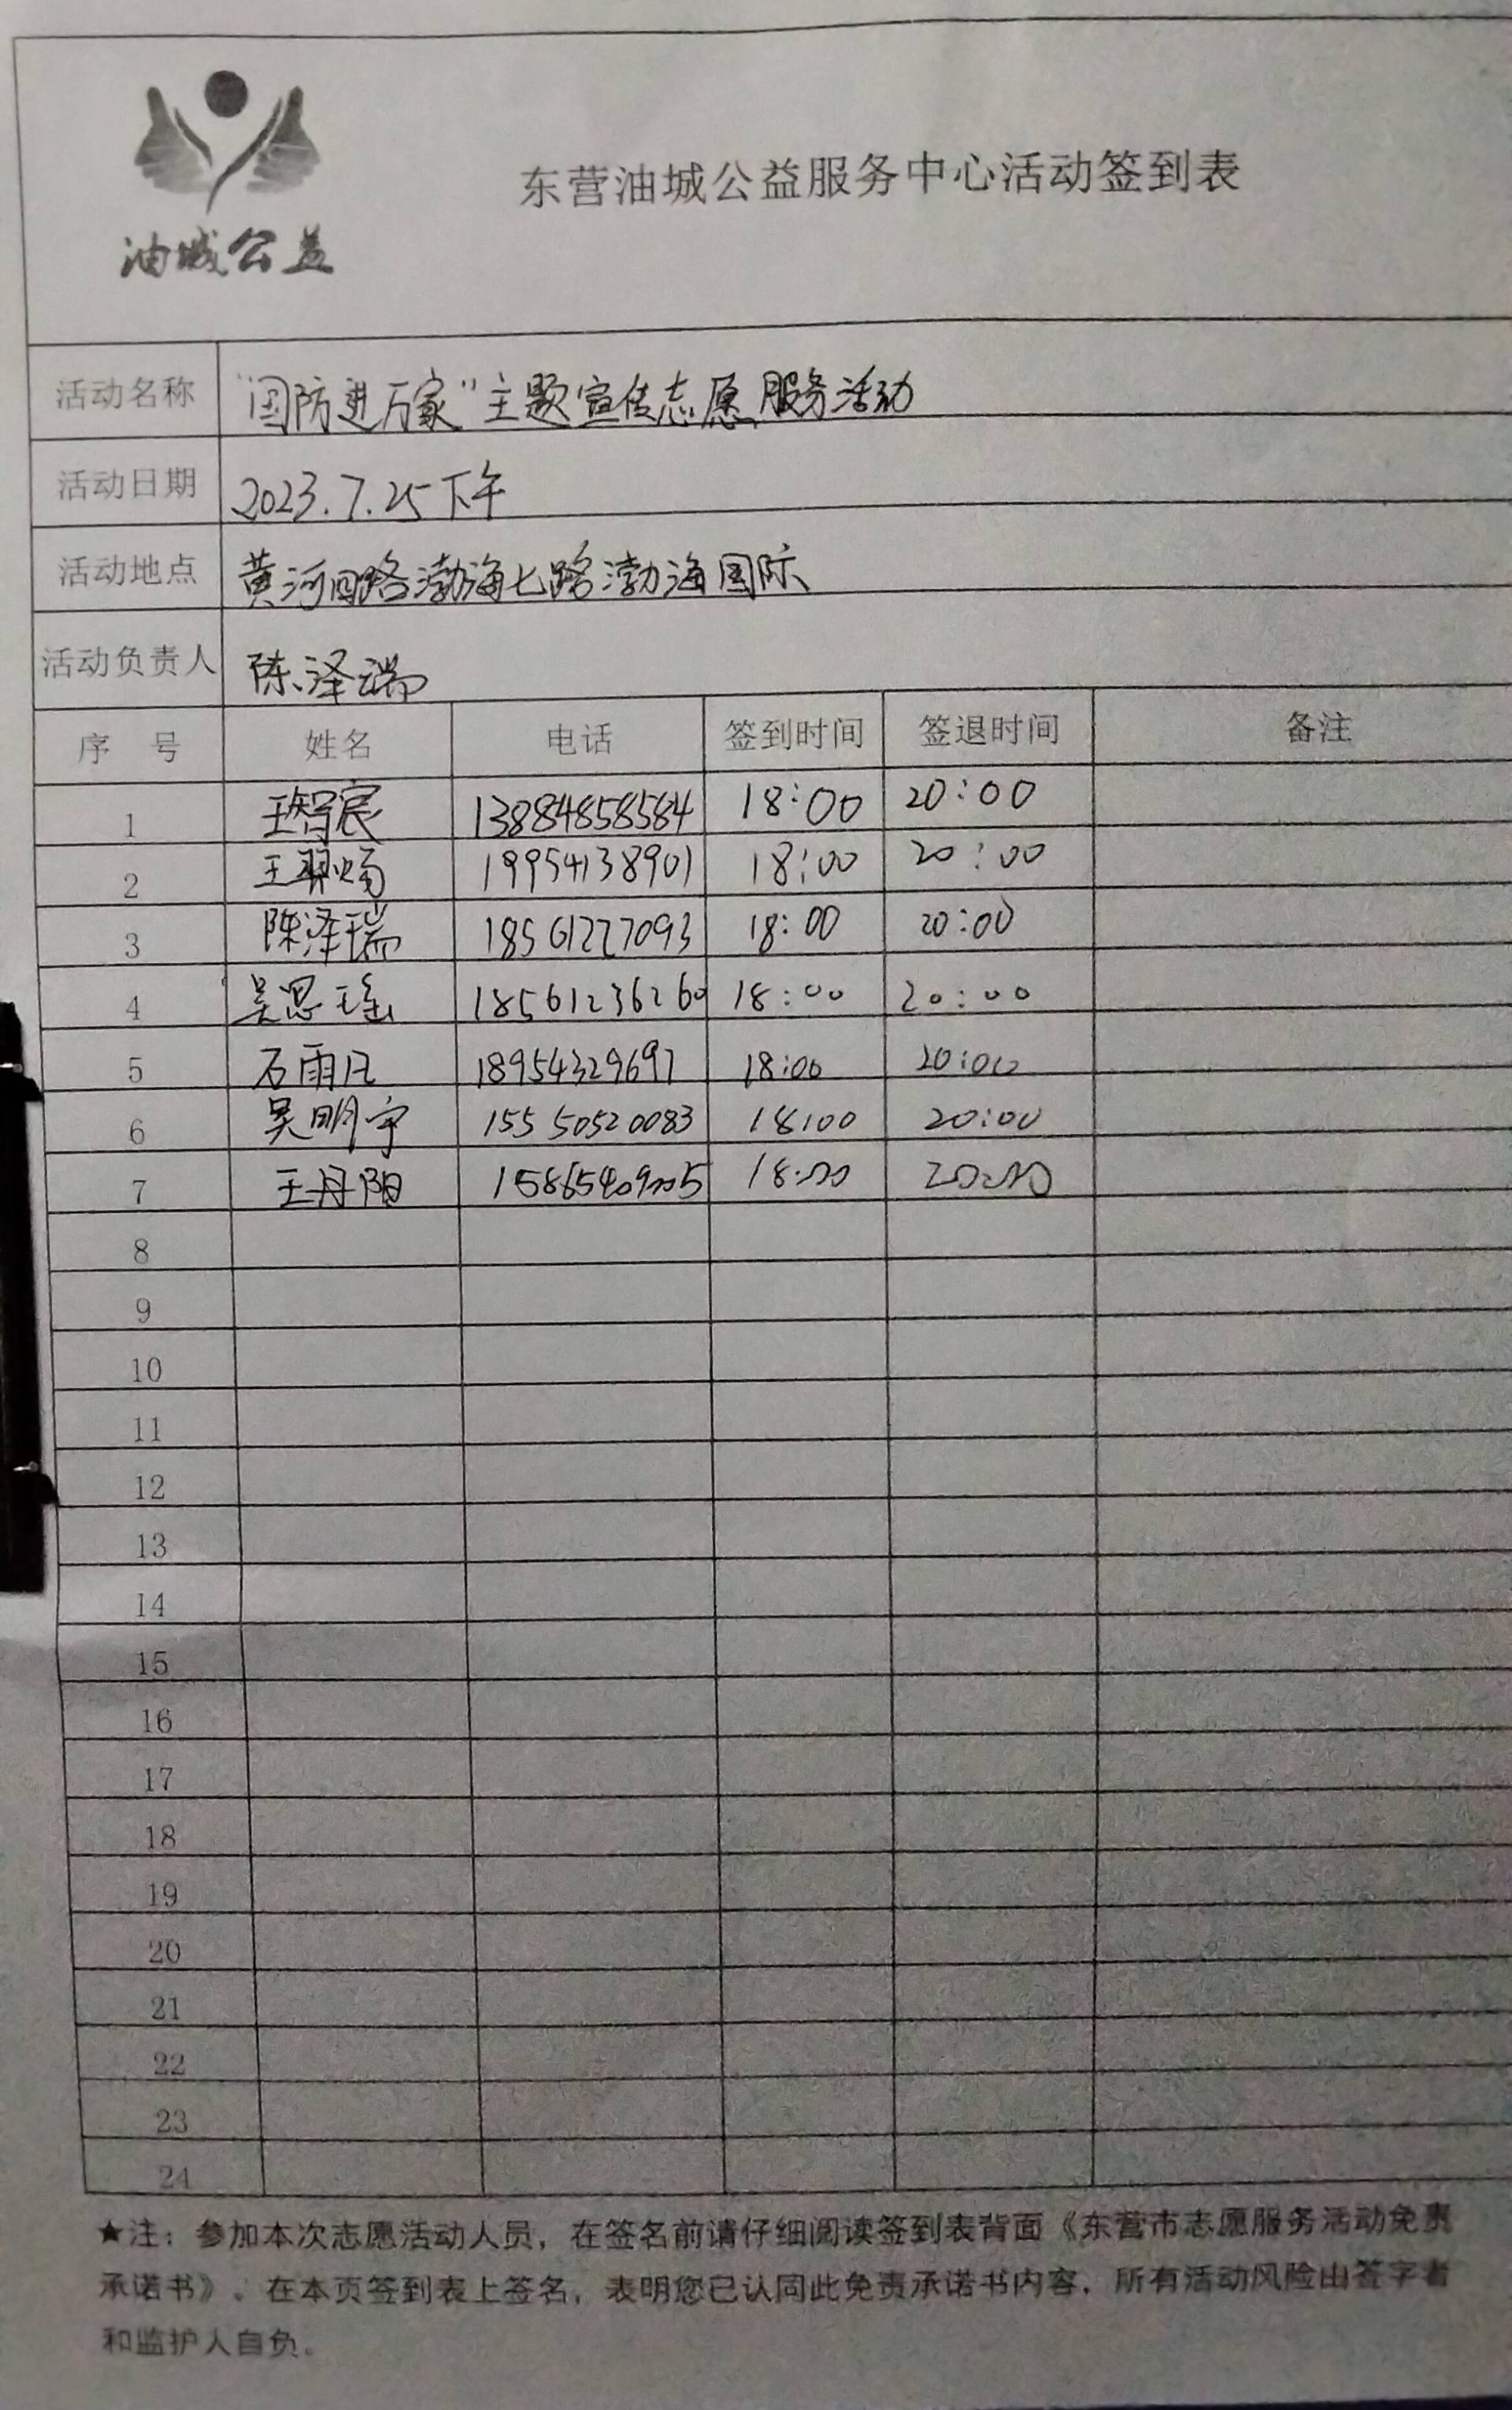 油城公益
东营油城公益服务中心活动签到表
活动名称 “国防进万家”主题宣传志愿服务活动
活动日期 2023.7.25下午
活动地点 黄河四路渤海七路渤海国际
活动负责人 陈泽瑞
序 号 姓名 电话 签到时间 签退时间 备注
1 王智宸 13884858584 18:00 20:00
2 王 19954138901 18:00 20:00
3 陈泽瑞 18561227093 18:00 20:00
4 吴思瑶 18561236260 18:00 20:00
5 石雨凡 18954329697 18:00 20:00
6 吴明宇 15550520083 18:00 20:00
7 王丹阳 18:00 20:00
8
9
10
11
12
13
14
15
16
17
18
19
20
21
22
23
24
★注：参加本次志愿活动人员，在签名前请仔细阅读签到表背面《东营市志愿服务活动免责
承诺书》。在本页签到表上签名，表明您已认同此免责承诺书内容，所有活动风险由签字者
和监护人自负。